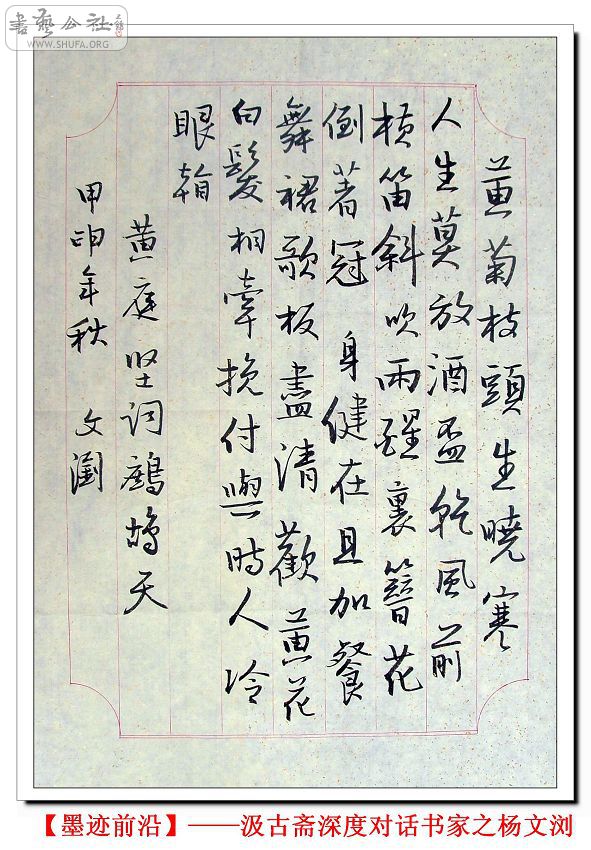 書藝公社
WWW.SHUFA.ORG
黄菊枝頭生曉寒
人生莫放酒盃乾風前
横笛斜吹雨醒裏簪花
倒著冠 身健在且加餐
舞裙歌板盡清歡黄花
白髮相牽挽付與時人冷
眼看
黄庭坚词鷓鴣天
甲申年秋 文瀏
【墨迹前沿】——汲古斋深度对话书家之杨文浏